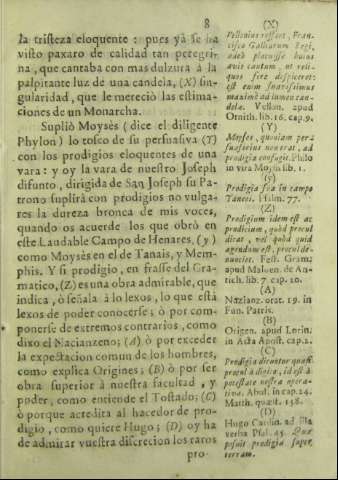 8
la tristeza eloquente : pues yà se ha
visto paxaro de calidad tan peregri-
na, que cantaba con mas dulzura à la
palpitante luz de una candela, (X) sin-
gularidad, que le mereciò las estima-
ciones de un Monarcha.
Supliò Moysès (dice el diligente
Phylon) lo tosco de su persuasiva (T)
con los prodigios eloquentes de una
vara : y oy la vara de nuestro Joseph
difunto, dirigida de San Joseph su Pa-
trono suplirà con prodigios no vulga-
res la dureza bronca de mis voces,
quando os acuerde los que obrò en
este Laudable Campo de Henares, (y)
como Moysès en el de Tanais, y Mem-
phis. Y si prodigio, en frasse del Gra-
matico, (Z) es una obra admirable, que
indica, ò señala à lo lexos, lo que està
lexos de poder conocerse; ò por com-
ponerse de extremos contrarios, como
dixo el Nacianzeno; (A) ò por exceder
la expectacion comun de los hombres,
como explica Origines; (B) ò por ser
obra superior à nuestra facultad, y
poder, como entiende el Tostado; (C)
ò porque acredita al hacedor de pro-
digio, como quiere Hugo; (D) oy ha
de admirar vuestra discrecion los raros
pro-
(X)
Vellonius refert, Fran-
cisco Gallicarum Regi,
adeò placuisse huius
avis cantum, ut reli-
quos ferè despiceret:
est enim suavissimus
maximè ad lumen can-
delæ. Vellon. apud
Ornith. lib. 16. cap. 9.
(Y)
Moyses, quoniam per-
suasorius non erat, ad
prodigia confugit. Philo
in vita Moysis lib. 1.
(y)
Prodigia sua in campo
Taneos. Psalm. 77.
(Z)
Prodigium idem est ac
prodicium, quòd procul
dicat, vel quòd quid
agendum est, procul de-
nunciet. Fest. Gram;
apud Maluen. de An-
tich. lib. 7 cap. 10.
(A)
Nazianz. orat. 19. in
Fun. Patris.
(B)
Origen. apud Lorin.
in Acta Apost. cap. 2.
(C)
Prodigia dicuntur quasi
procul à digito, id est à
potestate nostra opera-
tiva. Abul. in cap. 24.
Matth. quæst. 158.
(D)
Hugo Cardin. ad illa
verba Psal. 45. Quæ
posuit prodigia super
terram.